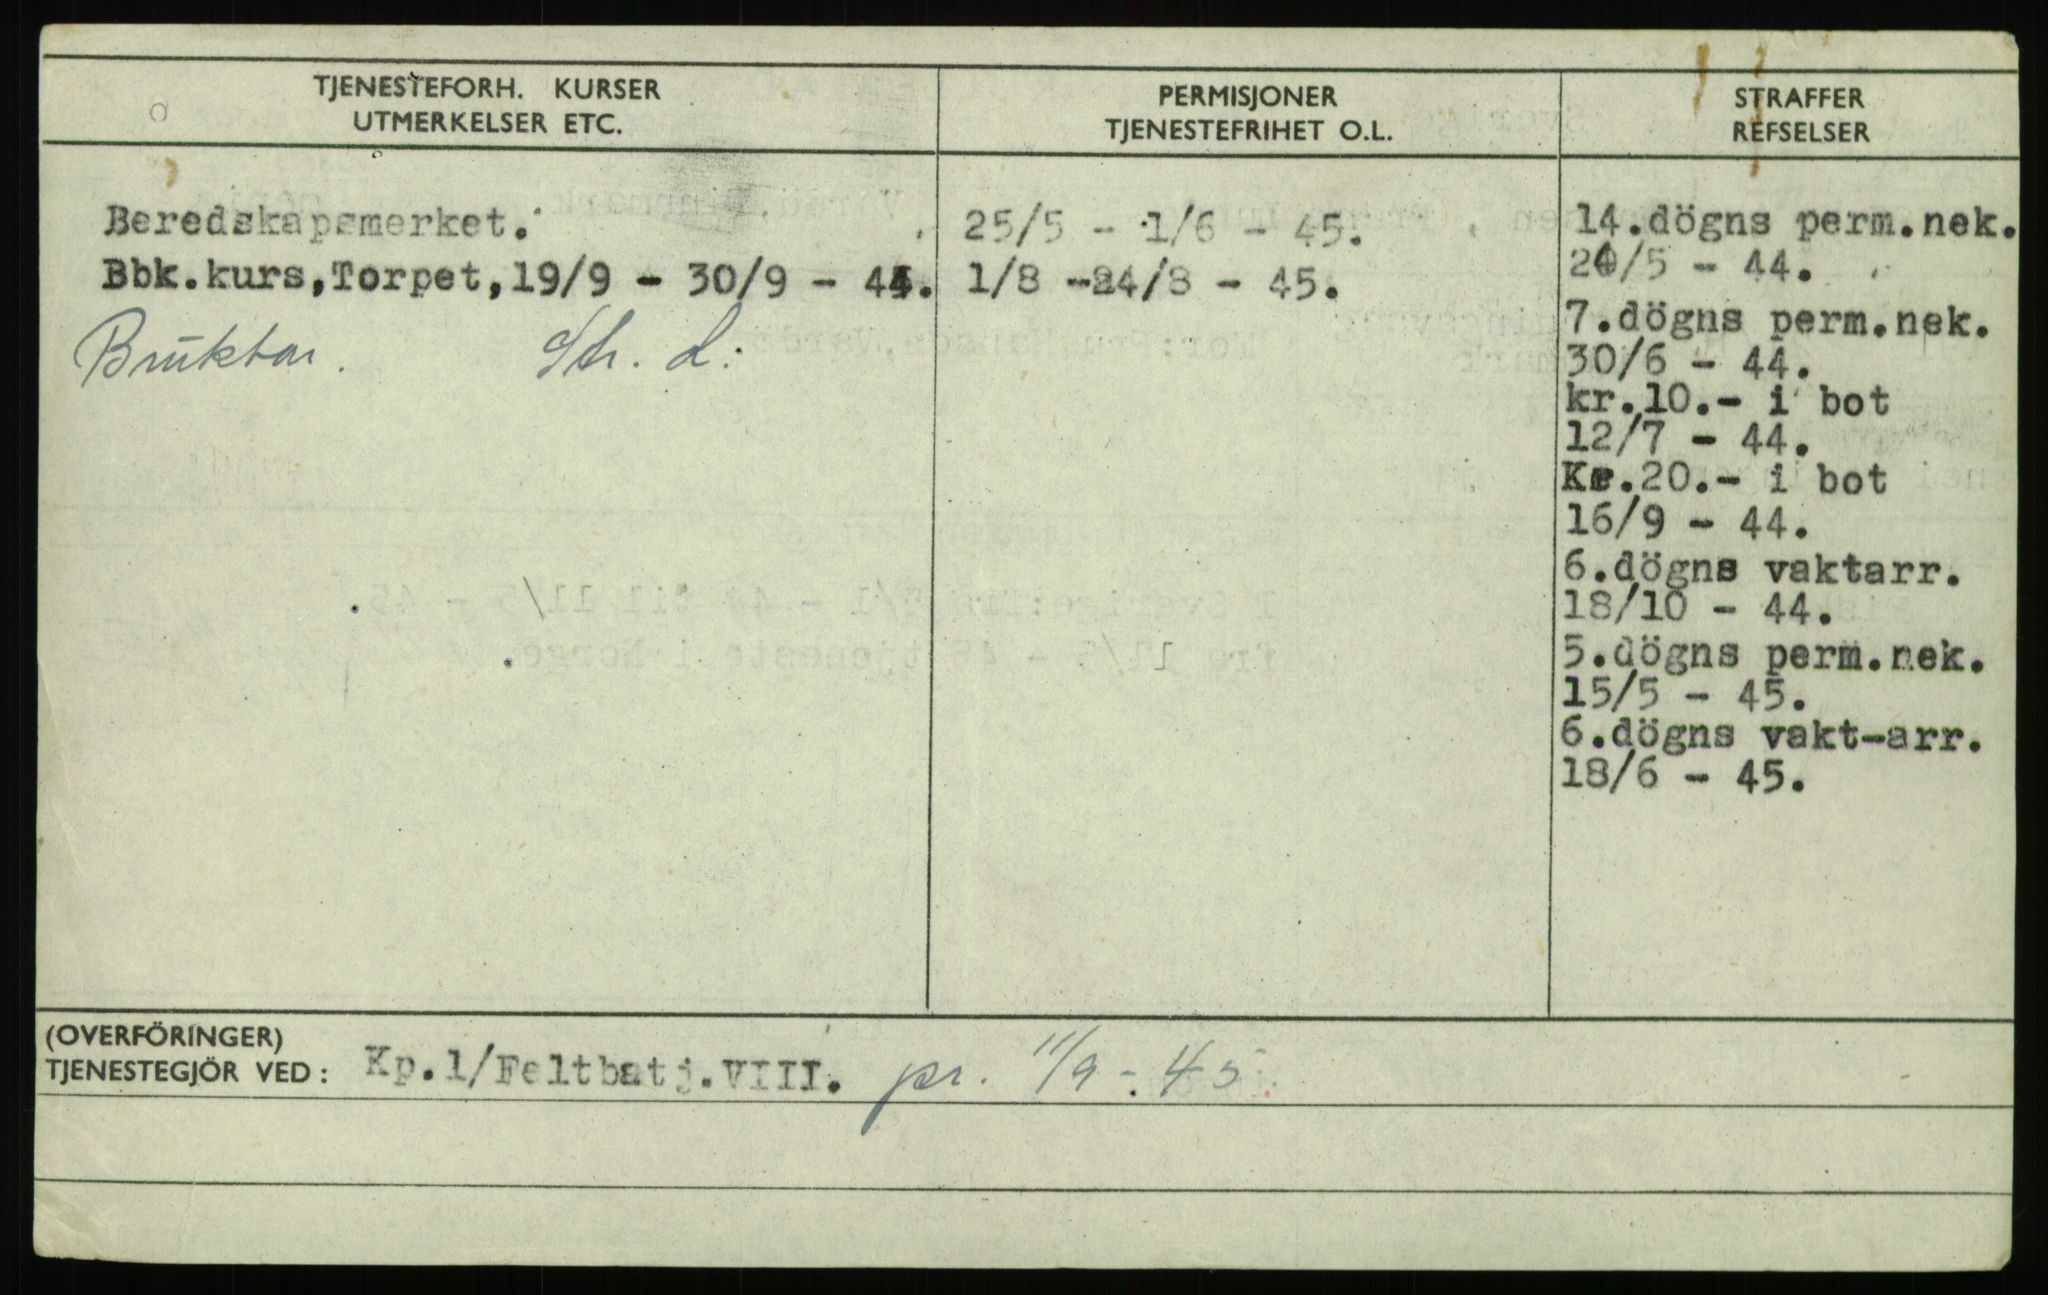 TJENESTEFORH. KURSER
UTMERKELSER ETC.
PERMISJONER
TJENESTEFRIHET O.L.
STRAFFER
REFSELSER
Beredskapsmerket.
Bbk.kurs,Torpet,19/9 - 30/9 - 44.
Brukbar. Str. L.
25/5 - 1/6 - 45.
1/8 -24/8 - 45.
14.dögns perm.nek.
/5 - 44.
7.dögns perm.nek.
30/6 - 44.
kr.10.- i bot
12/7 - 44.
Kr.20.- i bot
16/9 - 44.
6.dögns vaktarr.
18/10 - 44.
5.dögns perm.nek.
15/5 - 45.
6.dögns vakt-arr.
18/6 - 45.
(OVERFÖRINGER)
TJENESTEGJÖR VED: Kp.1/Feltbatj.VIII. pr. 11/9 - 45.